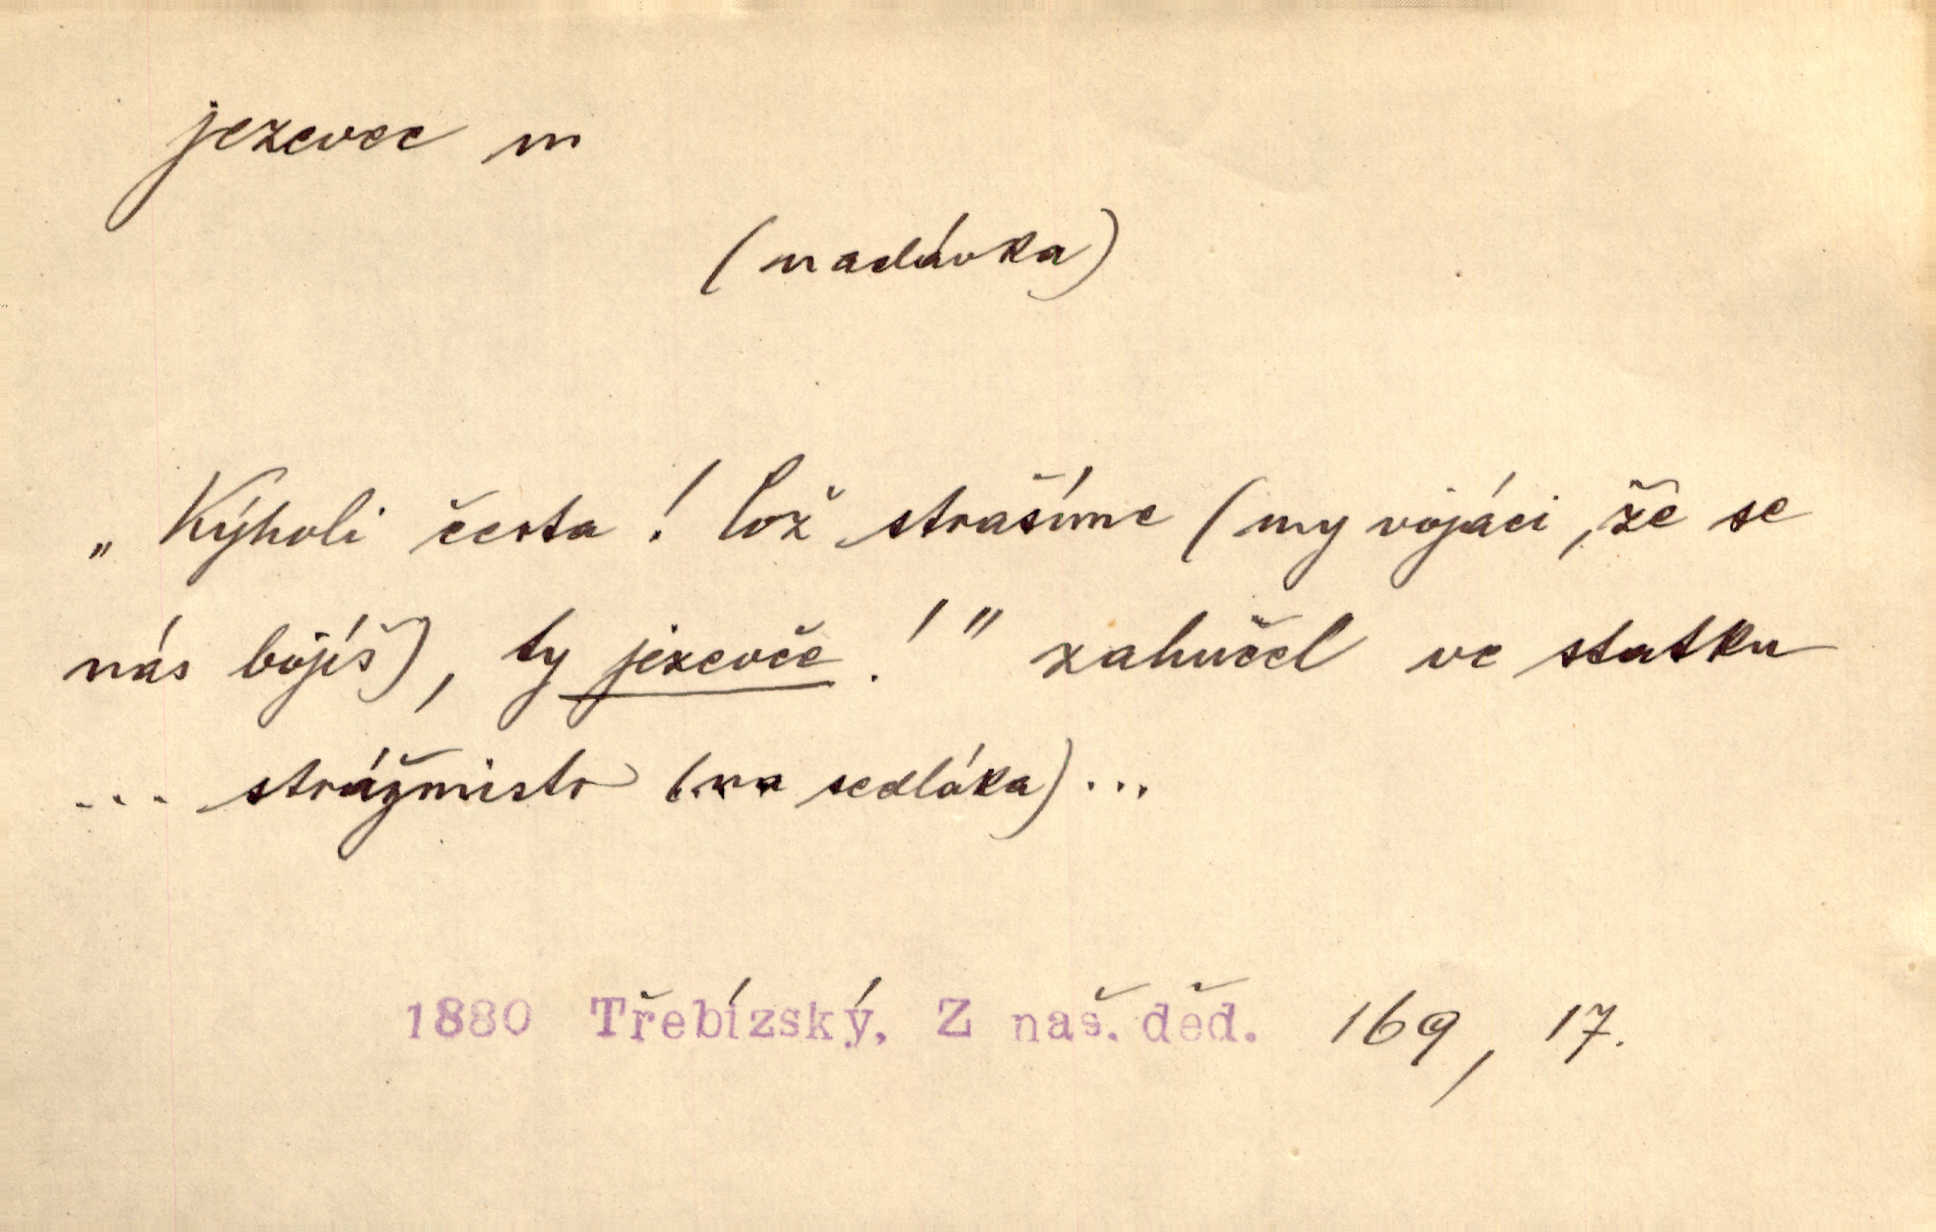 jezevec m
(nadávka)
„Kýholi čerta! Což strašíme (my vojáci, že se
nás bojíš), ty jezevče!" zahučel ve statku
... strážmistr (na sedláka)...
1880 Třebízský, Z naš. děd. 169, 17.